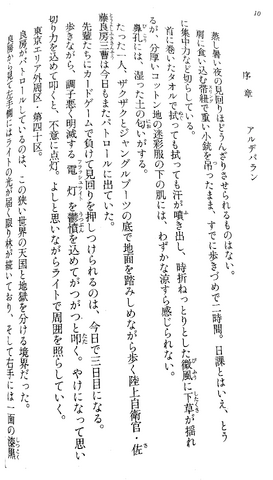 10
序章　アルデバラン
蒸し暑い夜の見回りほどうんざりさせられるものはない。
肩に食い込む帯紐で重い小銃を吊ったまま、すでに歩きづめで二時間。日課とはいえ、とう
に集中力など切らしている。
首に巻いたタオルで拭っても拭っても汗が噴き出し、時折ねっとりとした微風に下草が揺れ
るが、分厚いコットン地の迷彩服の下の肌には、わずかな涼すら感じられない。
鼻孔には、湿った土の匂いがする。
たった一人、ザクザクとジャングルブーツの底で地面を踏みしめながら歩く陸上自衛官・佐
藤良房三曹は今日もまたパトロールに出ていた。
先輩たちにカードゲームで負けて見回りを押しつけられるのは、今日で三日目になる。
歩きながら、調子悪く明滅する電灯を鬱憤を込めてがつがつと叩く。やけになって思い
切り力を込めて叩くと、不意に点灯。よしと思いながらライトで周囲を照らしていく。
東京エリア外周区・第四十区。
良房がパトロールしているのは、この狭い世界の天国と地獄を分ける境界だった。
良房から見て左手側にはライトの光が届く限り林が続いており、そして右手には一面の漆黒